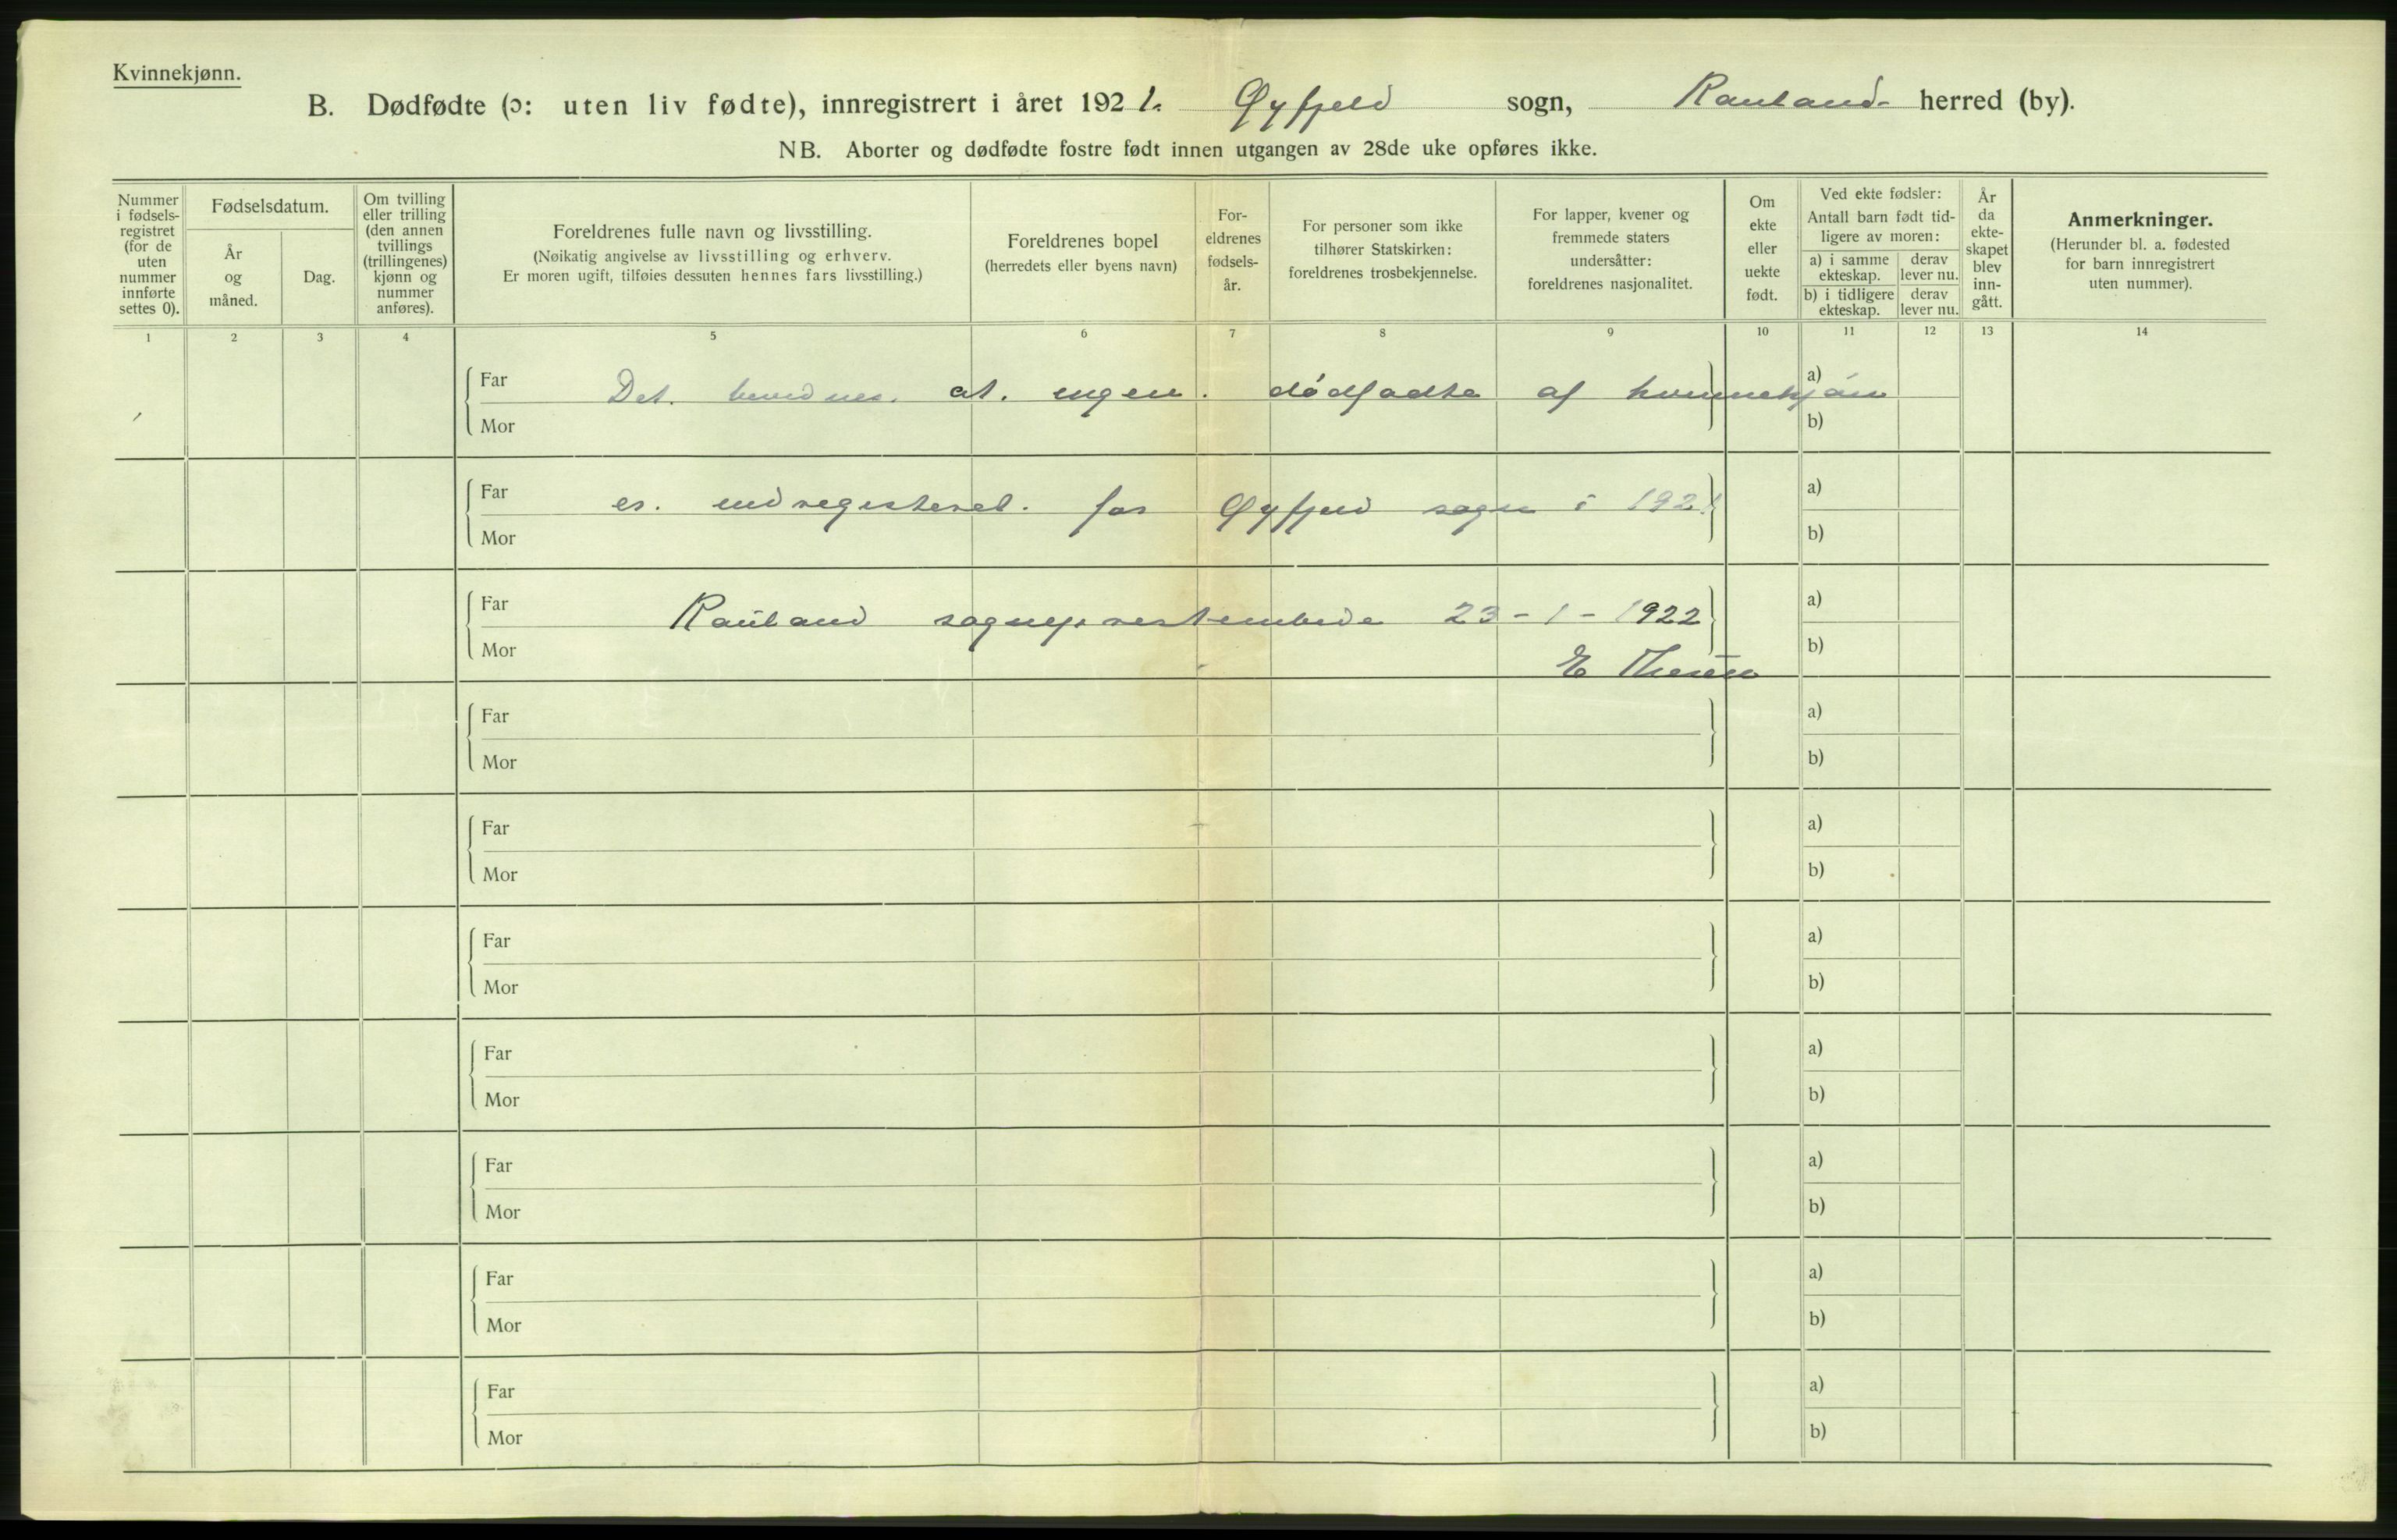 Kvinnekjønn.
B. Dødfødte (ɔ: uten liv fødte), innregistrert i året 1921. Øyfjeld sogn, Rauland herred (by).
NB. Aborter og dødfødte fostre født innen utgangen av 28de uke opføres ikke.
Nummer i fødsels-registret (for de uten nummer innførte settes 0).
Fødselsdatum.
År og måned.
Dag.
Om tvilling eller trilling (den annen tvillings (trillingenes) kjønn og nummer anføres).
Foreldrenes fulle navn og livsstilling.
(Nøikatig angivelse av livsstilling og erhverv.
Er moren ugift, tilføies dessuten hennes fars livsstilling.)
Foreldrenes bopel
(herredets eller byens navn)
For-eldrenes fødsels-år.
For personer som ikke tilhører Statskirken: foreldrenes trosbekjennelse.
For lapper, kvener og fremmede staters undersåtter: foreldrenes nasjonalitet.
Om ekte eller uekte født.
Ved ekte fødsler:
Antall barn født tid-ligere av moren:
a) i samme ekteskap. derav lever nu.
b) i tidligere ekteskap. derav lever nu.
År da ekte-skapet blev inn-gått.
Anmerkninger.
(Herunder bl. a. fødested for barn innregistrert uten nummer).
1 2 3 4 5 6 7 8 9 10 11 12 13 14
Far Det. bevidnes. at. ingen. dødfødte af kvinnekjøn a)
Mor b)
Far er. indregisteret. for Øyfjeld sogn i 1921 a)
Mor b)
Far Rauland sogneprestembede 23-1-1922 a)
Mor b)
E Thesen
Far a)
Mor b)
Far a)
Mor b)
Far a)
Mor b)
Far a)
Mor b)
Far a)
Mor b)
Far a)
Mor b)
Far a)
Mor b)